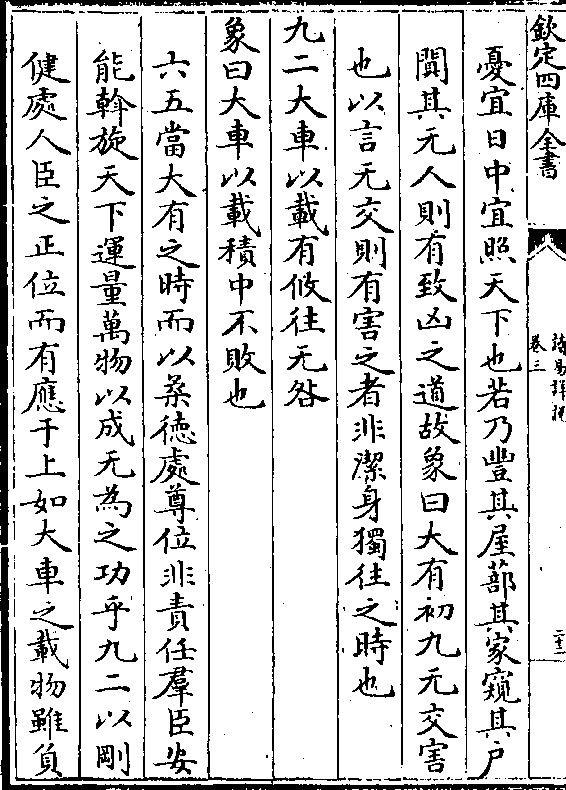 欽定四庫全書
卷三
憂宜日中宜照天下也若乃豐其屋蔀其家窺其户
闃其无人則有致凶之道故象曰大有初九无交害
也以言无交則有害之者非潔身獨往之時也
九二大車以載有攸往无咎
象曰大車以載積中不敗也
六五當大有之時而以柔德處尊位非責任羣臣安
能斡旋天下運量萬物以成无為之功乎九二以剛
健處人臣之正位而有應于上如大車之載物雖負